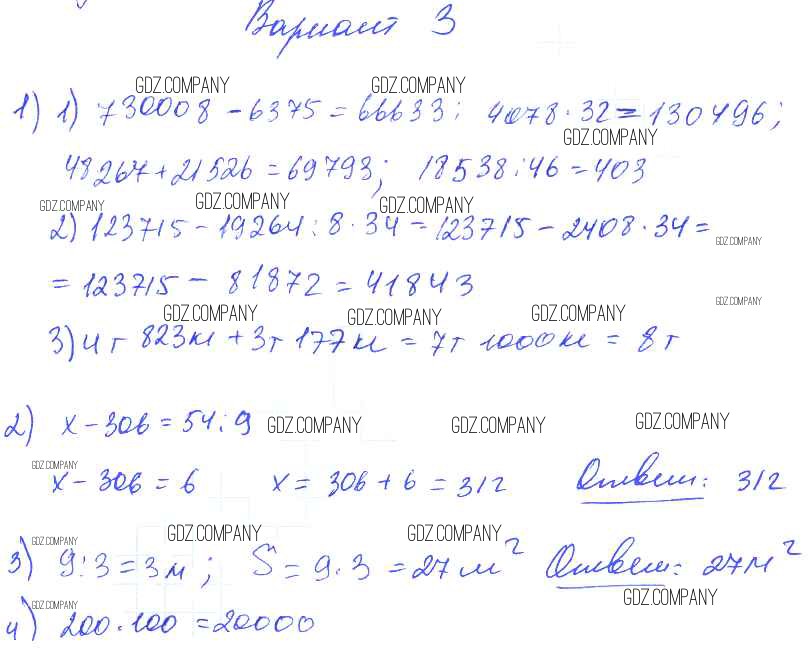 Вариант 3
GDZ.COMPANY GDZ.COMPANY
1) 1) 730008 - 6375 = 66633; 4078 · 32 = 130496;
GDZ.COMPANY
48267 + 21526 = 69793; 18538 : 46 = 403
GDZ.COMPANY GDZ.COMPANY GDZ.COMPANY
2) 123715 - 19264 : 8 · 34 = 123715 - 2408 · 34 =
GDZ.COMPANY
= 123715 - 81872 = 41843
GDZ.COMPANY
GDZ.COMPANY GDZ.COMPANY GDZ.COMPANY
3) 4т 823кг + 3т 177кг = 7т 1000кг = 8т
2) x - 306 = 54 : 9 GDZ.COMPANY GDZ.COMPANY GDZ.COMPANY
GDZ.COMPANY
x - 306 = 6 x = 306 + 6 = 312 Ответ: 312
GDZ.COMPANY GDZ.COMPANY GDZ.COMPANY
3) 9 : 3 = 3м; S = 9 · 3 = 27м² Ответ: 27м²
GDZ.COMPANY GDZ.COMPANY
4) 200 · 100 = 20000